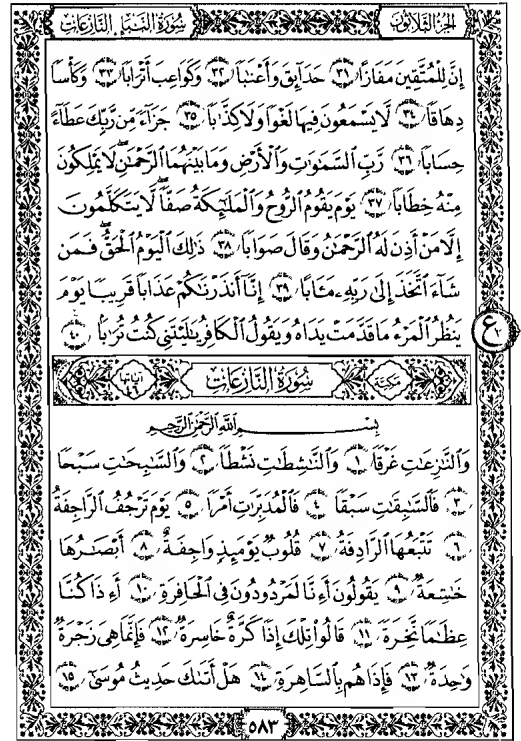 الجزء الثلاثون
سورة النبأ النازعات
إِنَّ لِلْمُتَّقِينَ مَفَازًا ٣١ حَدَآئِقَ وَأَعْنَٰبًا ٣٢ وَكَوَاعِبَ أَتْرَابًا ٣٣ وَكَأْسًا
دِهَاقًا ٣٤ لَّا يَسْمَعُونَ فِيهَا لَغْوًا وَلَا كِذَّٰبًا ٣٥ جَزَآءً مِّن رَّبِّكَ عَطَآءً
حِسَابًا ٣٦ رَّبِّ ٱلسَّمَٰوَٰتِ وَٱلْأَرْضِ وَمَا بَيْنَهُمَا ٱلرَّحْمَٰنِ ۖ لَا يَمْلِكُونَ
مِنْهُ خِطَابًا ٣٧ يَوْمَ يَقُومُ ٱلرُّوحُ وَٱلْمَلَٰٓئِكَةُ صَفًّا ۖ لَّا يَتَكَلَّمُونَ
إِلَّا مَنْ أَذِنَ لَهُ ٱلرَّحْمَٰنُ وَقَالَ صَوَابًا ٣٨ ذَٰلِكَ ٱلْيَوْمُ ٱلْحَقُّ ۖ فَمَن
شَآءَ ٱتَّخَذَ إِلَىٰ رَبِّهِۦ مَـَٔابًا ٣٩ إِنَّآ أَنذَرْنَٰكُمْ عَذَابًا قَرِيبًا يَوْمَ
يَنظُرُ ٱلْمَرْءُ مَا قَدَّمَتْ يَدَاهُ وَيَقُولُ ٱلْكَافِرُ يَٰلَيْتَنِى كُنتُ تُرَٰبًۢا ٤٠
ع
مكية
سورة النازعات
آياتها ٤٦
بِسْمِ ٱللَّهِ ٱلرَّحْمَٰنِ ٱلرَّحِيمِ
وَٱلنَّٰزِعَٰتِ غَرْقًا ١ وَٱلنَّٰشِطَٰتِ نَشْطًا ٢ وَٱلسَّٰبِحَٰتِ سَبْحًا
٣ فَٱلسَّٰبِقَٰتِ سَبْقًا ٤ فَٱلْمُدَبِّرَٰتِ أَمْرًا ٥ يَوْمَ تَرْجُفُ ٱلرَّاجِفَةُ
٦ تَتْبَعُهَا ٱلرَّادِفَةُ ٧ قُلُوبٌ يَوْمَئِذٍ وَاجِفَةٌ ٨ أَبْصَٰرُهَا
خَٰشِعَةٌ ٩ يَقُولُونَ أَءِنَّا لَمَرْدُودُونَ فِى ٱلْحَافِرَةِ ١٠ أَءِذَا كُنَّا
عِظَٰمًا نَّخِرَةً ١١ قَالُوا۟ تِلْكَ إِذًا كَرَّةٌ خَاسِرَةٌ ١٢ فَإِنَّمَا هِىَ زَجْرَةٌ
وَٰحِدَةٌ ١٣ فَإِذَا هُم بِٱلسَّاهِرَةِ ١٤ هَلْ أَتَىٰكَ حَدِيثُ مُوسَىٰٓ ١٥
٥٨٣